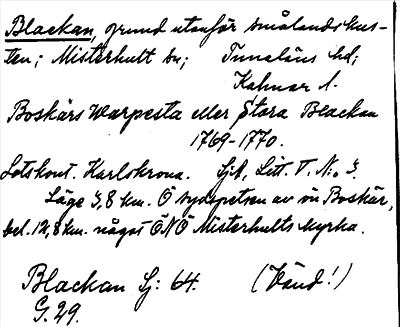 Blackan, grund utanför smålandskus-
ten; Misterhult sn; Tunaläns hd;
Kalmar l.
Boskärs Warpesta eller Stora Blackan
1769-1770.
Lotskont. Karlskrona. Sjk, Litt. T. No. 3.
Läge 3,8 km. Ö sydspetsen av ön Boskär,
bel. 12,8 km. något ÖNÖ Misterhults kyrka.
Blackan Sj: 64. (Vänd!)
G. 29.